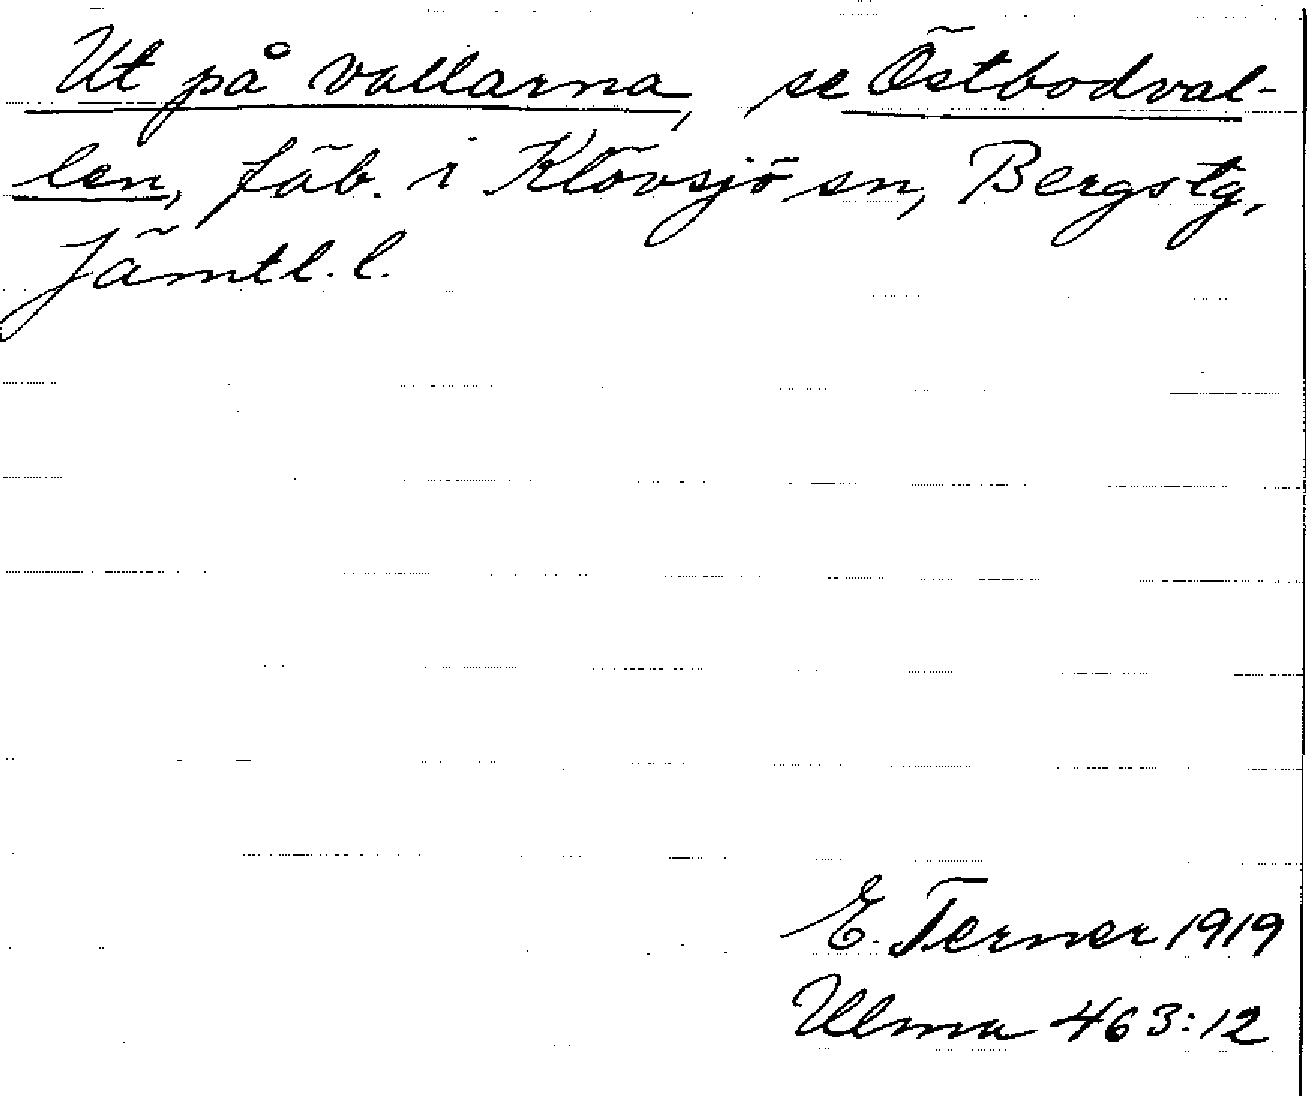 Ut på vallarna, se Östbodval-
len, fäb. i Klövsjö sn, Bergstg,
Jämtl. l.
E. Terner 1919
Ulma 463:12